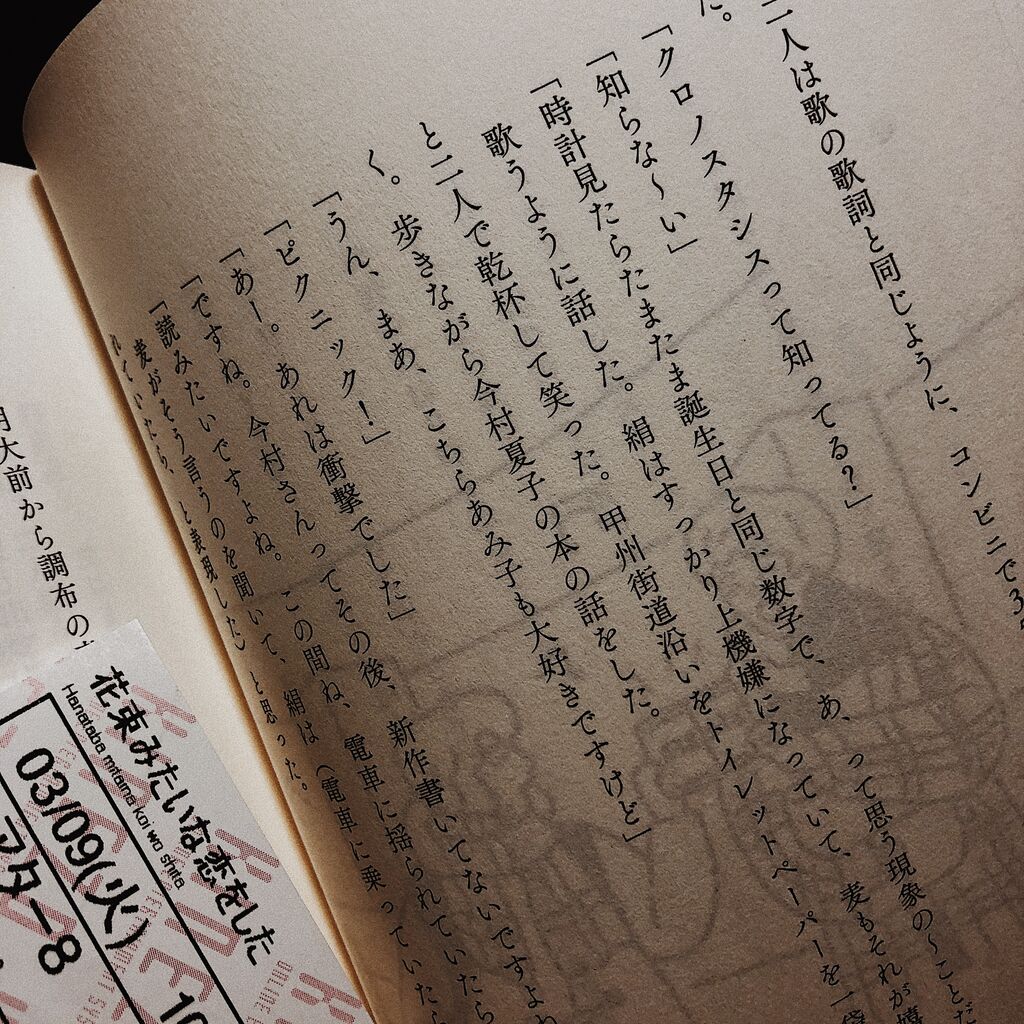 た。
二人は歌の歌詞と同じように、コンビニで3
「クロノスタシスって知ってる?」
「知らな〜い」
「時計見たらたまたま誕生日と同じ数字で、あ、って思う現象の〜ことだ
歌うように話した。絹はすっかり上機嫌になっていて、麦もそれが嬉
と二人で乾杯して笑った。甲州街道沿いをトイレットペーパーを一袋
く。歩きながら今村夏子の本の話をした。
「うん、まあ、こちらあみ子も大好きですけど」
「ピクニック!」
「あー。あれは衝撃でした」
「ですね。今村さんってその後、新作書いてないですよね
「読みたいですよね。この間ね、電車に揺られていたら
麦がそう言うのを聞いて、絹は(電車に乗っていたら
れていたら、と表現した)と思った。
月大前から調布の
花束みたいな恋をした
Hanataba mitaina koi wo shita
03/09(火) 10
アター8